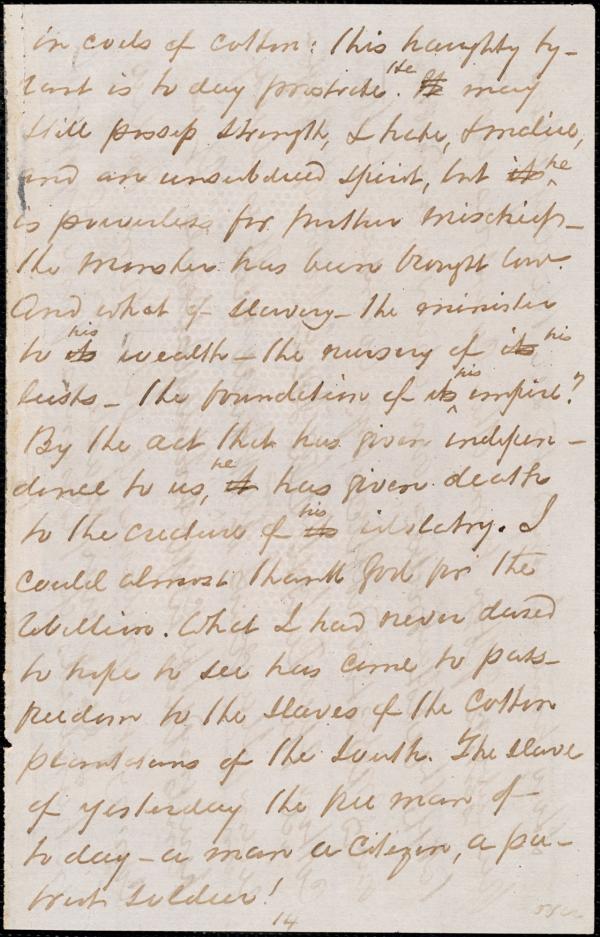 in coils of cotton: this haughty ty-
rant is to day prostrate. the It may
still possess strength, & hate, & malice,
and an unsubdued spirit, but its he
is powerless for further mischief-
the monster has been brought low.
And what of slavery - the minister
to its his wealth - the nursery of its his
lusts - the foundation of its his empire?
By the act that has given indepen-
dence to us, it he has given death
to the creature of its his idolatry. I
could almost thank God for the
rebellion. What I had never dared
to hope to see has come to pass-
freedom to the slaves of the Cotton
plantations of the South. The slave
of yesterday the free man of
to day - a man a citizen, a pa-
triot soldier!
14